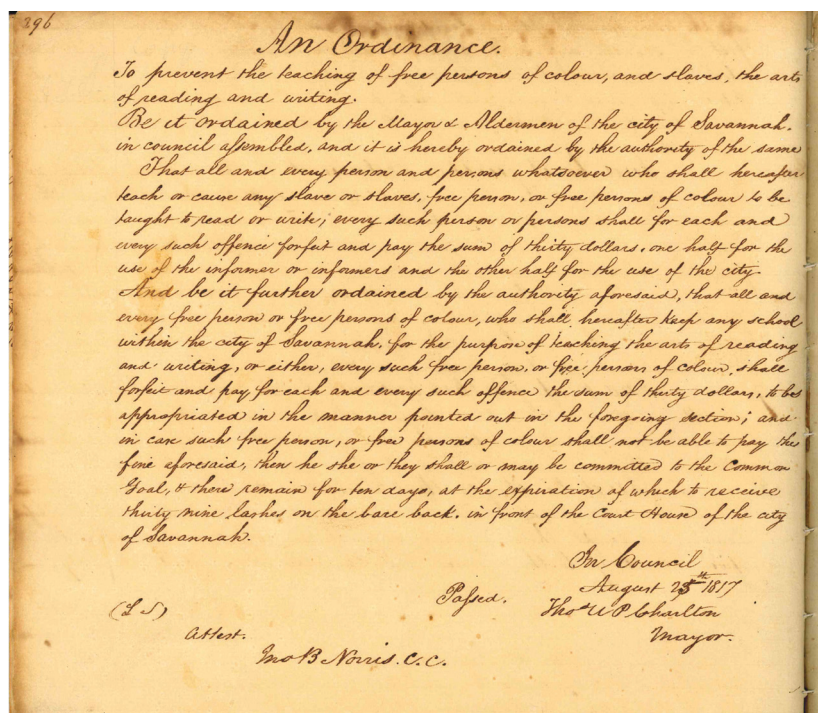 296
An Ordinance.
To prevent the teaching of free persons of colour, and slaves, the arts
of reading and writing.
Be it ordained by the Mayor & Aldermen of the city of Savannah.
in council assembled, and it is hereby ordained by the authority of the same
That all and every person and persons whatsoever who shall hereafter
teach or cause any slave or slaves, free person, or free persons of colour to be
taught to read or write; every such person or persons shall for each and
every such offence forfeit and pay the sum of thirty dollars. one half for the
use of the informer or informers and the other half for the use of the city
And be it further ordained by the authority aforesaid, that all and
every free person or free persons of colour, who shall hereafter keep any school
within the city of Savannah, for the purpose of teaching the arts of reading
and writing, or either, every such free person, or free persons of colour, shall
forfeit and pay for each and every such offence the sum of thirty dollars, to be
appropriated in the manner pointed out in the foregoing section; and
in case such free person, or free persons of colour shall not be able to pay the
fine aforesaid, then he she or they shall or may be committed to the Common
Goal, & there remain for ten days, at the expiration of which to receive
thirty nine lashes on the bare back. in front of the Court House of the city
of Savannah.
In Council
Passed. August 25th 1817
(L S) Thos U P Charlton
Attest. Mayor.
Jno B Norris. C. C.